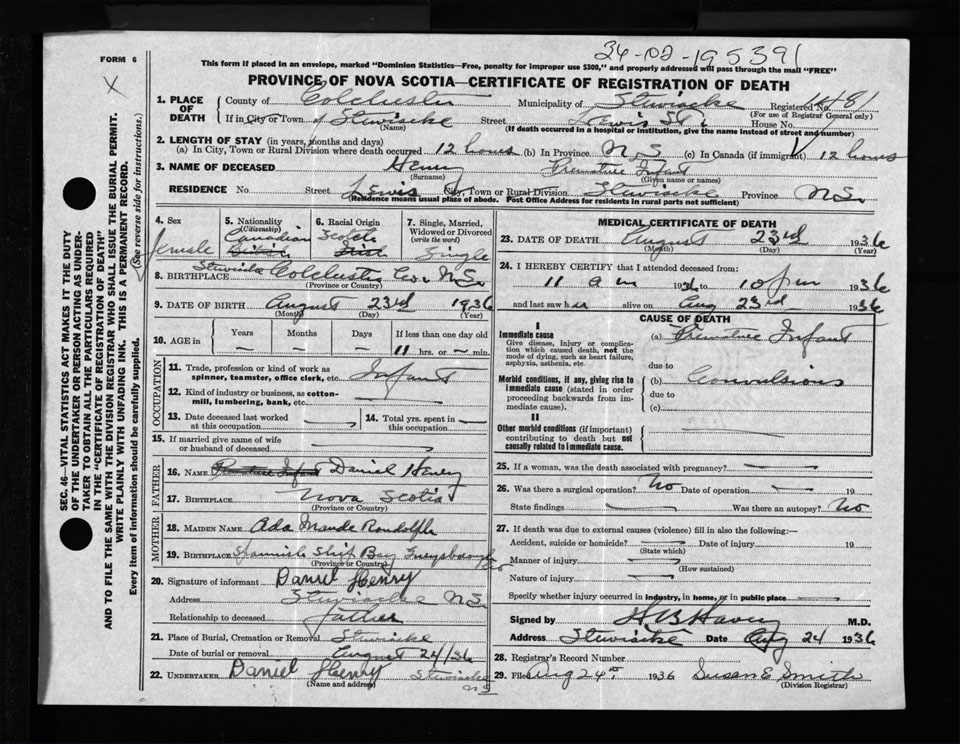 FORM 6
36-02-195391
This form if placed in an envelope, marked "Dominion Statistics—Free, penalty for improper use $300," and properly addressed will pass through the mail "FREE"
PROVINCE OF NOVA SCOTIA—CERTIFICATE OF REGISTRATION OF DEATH
X
SEC. 46—VITAL STATISTICS ACT MAKES IT THE DUTY
OF THE UNDERTAKER OR PERSON ACTING AS UNDER-
TAKER TO OBTAIN ALL THE PARTICULARS REQUIRED
IN THE "CERTIFICATE OF REGISTRATION OF DEATH"
AND TO FILE THE SAME WITH THE DIVISION REGISTRAR WHO SHALL ISSUE THE BURIAL PERMIT.
WRITE PLAINLY WITH UNFADING INK. THIS IS A PERMANENT RECORD.
Every item of information should be carefully supplied. (See reverse side for instructions.)
1. PLACE OF DEATH
County of Colchester Municipality of Stewiacke Registered No. 1481
(For use of Registrar General only)
If in City or Town of Stewiacke Street Lewis St. House No.
(Name) (If death occurred in a hospital or institution, give the name instead of street and number)
2. LENGTH OF STAY (in years, months and days)
(a) In City, Town or Rural Division where death occurred 12 hours (b) In Province N S (c) In Canada (if immigrant) 12 hours
3. NAME OF DECEASED Henry Premature Infant
(Surname) (Given name or names)
RESIDENCE No. Street Lewis City, Town or Rural Division Stewiacke Province N.S.
(Residence means usual place of abode. Post Office Address for residents in rural parts not sufficient)
4. Sex female
5. Nationality (Citizenship) Canadian British
6. Racial Origin Scotch
7. Single, Married, Widowed or Divorced (write the word) Single
8. BIRTHPLACE Stewiacke Colchester Co. N.S.
(Province or Country)
9. DATE OF BIRTH August 23rd 1936
(Month) (Day) (Year)
10. AGE in Years Months Days If less than one day old
— — — 11 hrs. or — min.
OCCUPATION
11. Trade, profession or kind of work as spinner, teamster, office clerk, etc. Infant
12. Kind of industry or business, as cotton-mill, lumbering, bank, etc.
13. Date deceased last worked at this occupation
14. Total yrs. spent in this occupation
15. If married give name of wife or husband of deceased
FATHER
16. NAME Premature Infant Daniel Henry
17. BIRTHPLACE Nova Scotia
(Province or Country)
MOTHER
18. MAIDEN NAME Ada Maude Rondolph
19. BIRTHPLACE Spanish Ship Bay Guysborough Co
(Province or Country)
20. Signature of informant Daniel Henry
Address Stewiacke N.S.
Relationship to deceased father
21. Place of Burial, Cremation or Removal Stewiacke
Date of burial or removal August 24/36
22. UNDERTAKER Daniel Henry Stewiacke N S
(Name and address)
MEDICAL CERTIFICATE OF DEATH
23. DATE OF DEATH August 23rd 1936
(Month) (Day) (Year)
24. I HEREBY CERTIFY that I attended deceased from:
11 a m 1936 to 10 p m 1936
and last saw her alive on Aug 23rd 1936
CAUSE OF DEATH
I
Immediate cause
Give disease, injury or complication which caused death, not the mode of dying, such as heart failure, asphyxia, asthenia, etc.
(a) Premature Infant
due to
Morbid conditions, if any, giving rise to immediate cause (stated in order proceeding backwards from immediate cause).
(b) Convulsions
due to
(c)
II
Other morbid conditions (if important) contributing to death but not causally related to immediate cause.
25. If a woman, was the death associated with pregnancy?
26. Was there a surgical operation? No Date of operation 19
State findings Was there an autopsy? No
27. If death was due to external causes (violence) fill in also the following:—
Accident, suicide or homicide? Date of injury 19
(State which)
Manner of injury
(How sustained)
Nature of injury
Specify whether injury occurred in industry, in home, or in public place
Signed by H B Havey M.D.
Address Stewiacke Date Aug 24 1936
28. Registrar's Record Number
29. Filed Aug 24th 1936 Susan E Smith
(Division Registrar)